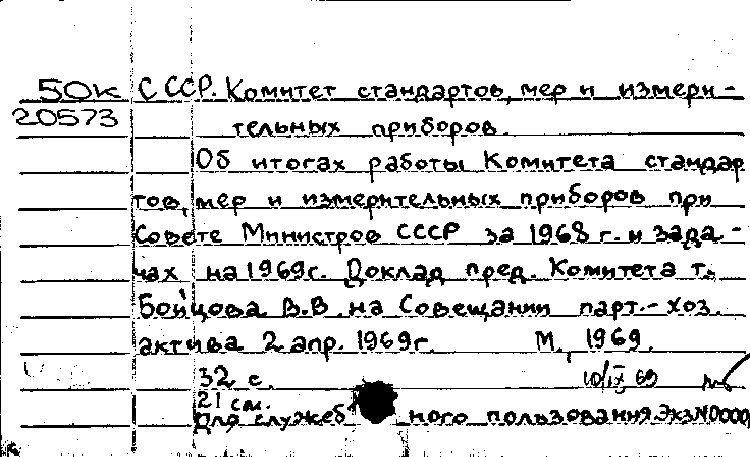 50к СССР. Комитет стандартов, мер и измери-
20573 тельных приборов.
Об итогах работы Комитета стандар
тов, мер и измерительных приборов при
Совете Министров СССР за 1968 г. и зада-
чах на 1969г. Доклад пред. Комитета т.
Бойцова В.В. на Совещании парт.-хоз.
актива 2 апр. 1969г. М., 1969.
32 с. 10/IX 69
21 см.
Для служебного пользования. Экз N0000